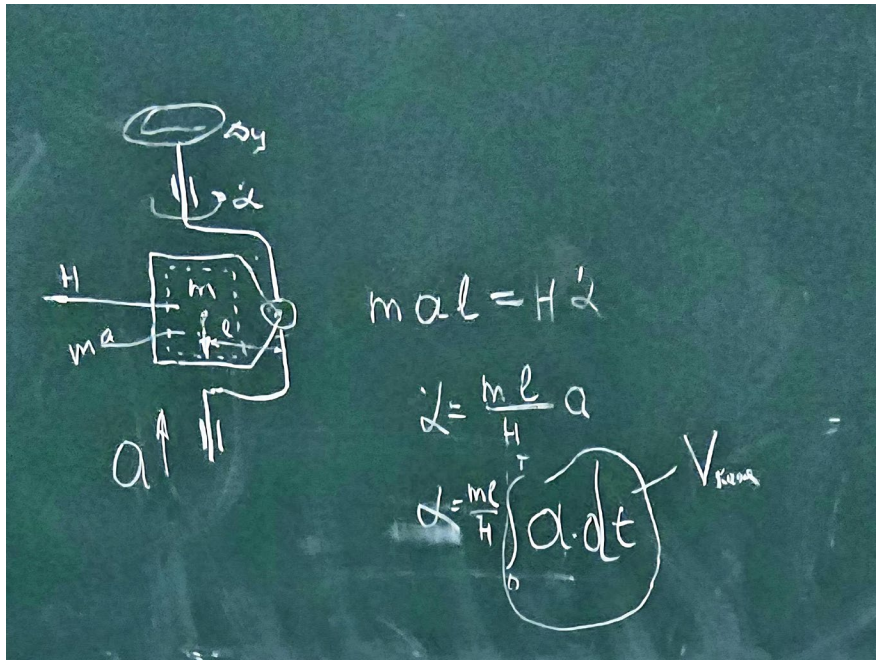 Δy
α̇
H
m
l
ma
a
mal = Hα̇
α̇ = ml/H a
α = ml/H ∫₀ᵀ a·dt
V